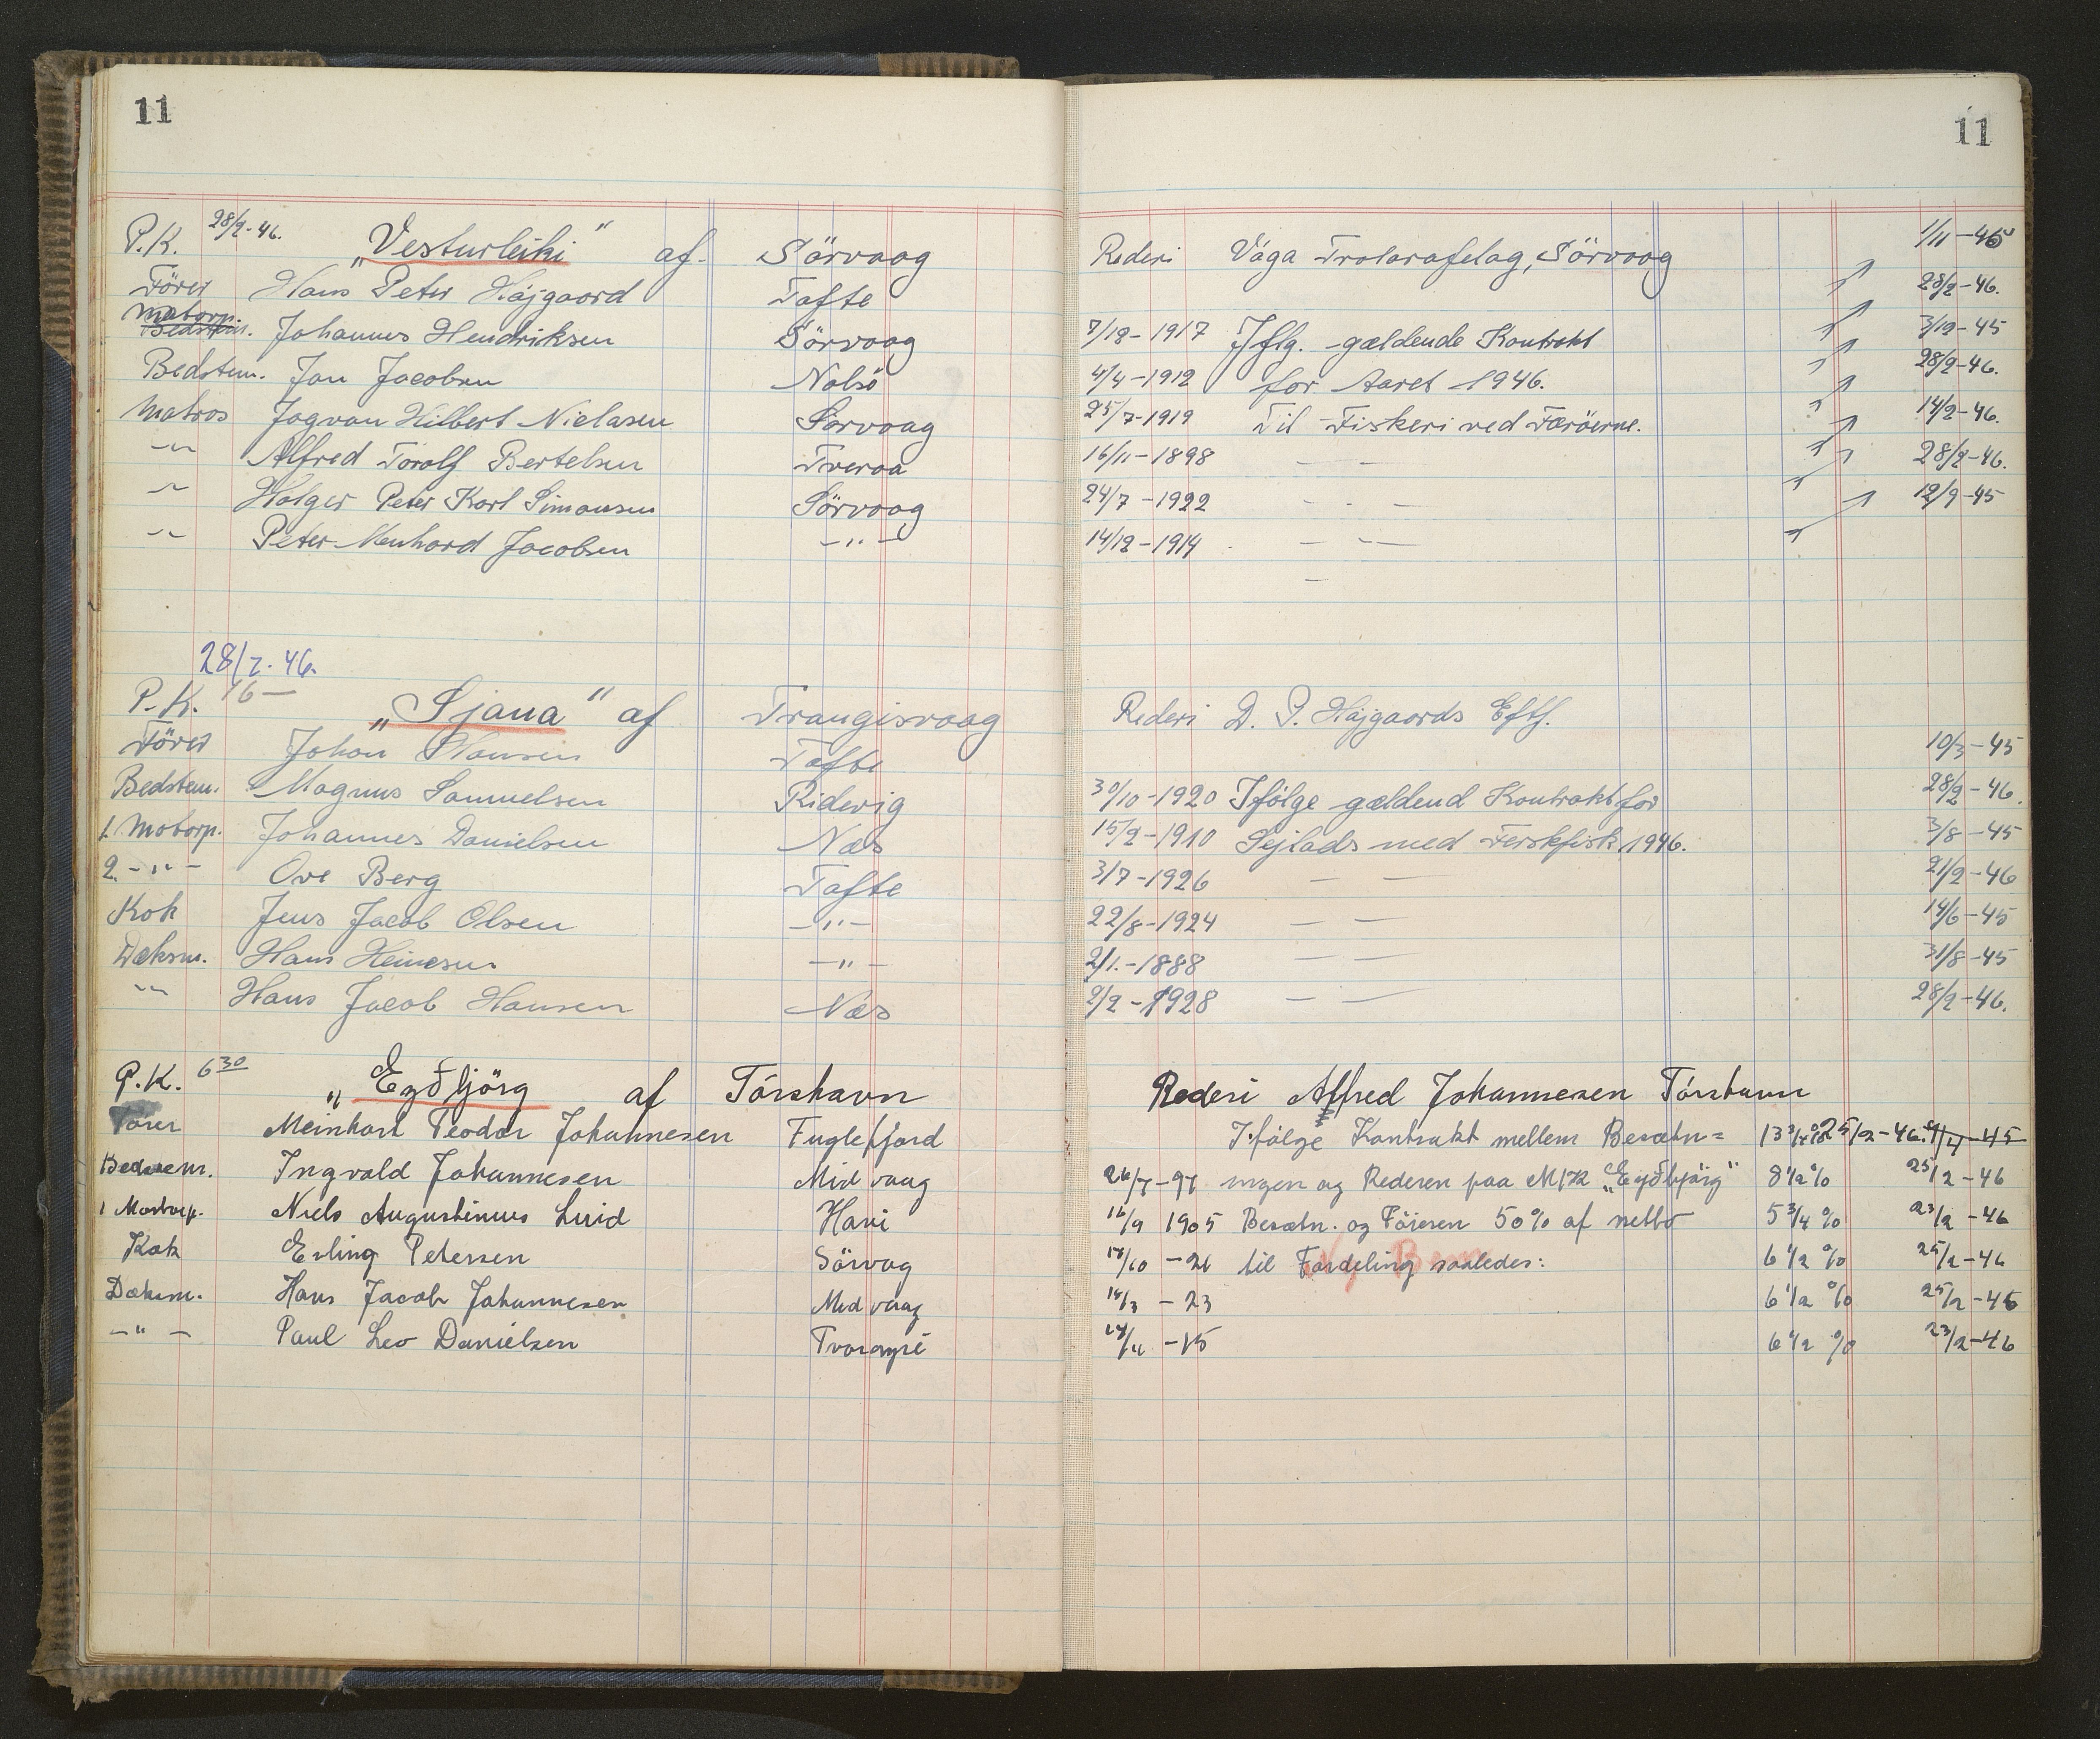 11
P.K. 28/2-46. „Vesturleiki“ af Sörvaag
Förer Hans Peter Højgaard Tofte
Motorp. Bedstem. Johannus Hendriksen Sörvaag
Bedstem. Jan Jacobsen Nolsö
Matros Jogvan Hilbert Nielasen Sörvaag
-"- Alfred Torolf Bertelsen Tveraa
-"- Holger Peter Karl Simonsen Sörvaag
-"- Peter Menhard Jacobsen -"-
28/2. 46.
P.K. 16— „Sjana“ af Trangisvaag
Förer Johan Hansen Tofte
Bedstem. Magnus Samuelsen Ridevig
1. Motorp. Johannes Danielsen Næs
2. -"- Ove Berg Tofte
Kok Jens Jacob Olsen -"-
Dæksm. Hans Heinesen -"-
-"- Hans Jacob Hansen Næs
P.K. 6 30 „Eyðbjörg af Tórshavn
Förer Meinhart Teodor Johannesen Fuglefjord
Bedstem. Ingvald Johannesen Midvaag
1 Motorp. Niels Augustinus Luid
Kok Erling Petersen Sörvag
Dæksm. Hans Jacob Johannesen Midvaag
-"- Paul Leo Danielsen Tvøroyri
11
Rederi Vága Trolarafelag, Sörvaag 1/11-45
28/2-46.
7/12-1917 Iflg. gældende Kontrakt 3/12-45
4/4-1912 for Aaret 1946. 28/2-46.
25/7-1919 Til Fiskeri ved Færöerne. 14/2-46.
16/11-1898 — — 28/2-46.
24/7-1922 — — 12/9-45
14/12-1914 — —
Rederi D. P. Højgaards Eftf.
10/3-45
30/10-1920 Ifölge gældend Kontrakt for 28/2-46.
15/2-1910 Sejlads med Ferskfisk 1946. 3/8-45
3/7-1926 — — 21/2-46
22/8-1924 — — 14/6-45
2/1.-1888 — — 31/8-45
2/2-1928 — — 28/2-46.
Rederi Alfred Johannesen Tórshavn
Ifölge Kontrakt mellem Besætn= 13 3/4 % 25/2-46.
26/7-97 ingen og Rederen paa M/K „Eyðbjörg“ 8 1/2 % 25/2-46
16/9 1905 Besætn. og Föreren 50% af netto 5 3/4 % 23/2-46
til Fordeling saaledes: 6 1/2 % 25/2-46
14/3-23 6 1/2 % 25/2-46
6 1/2 % 23/2-46